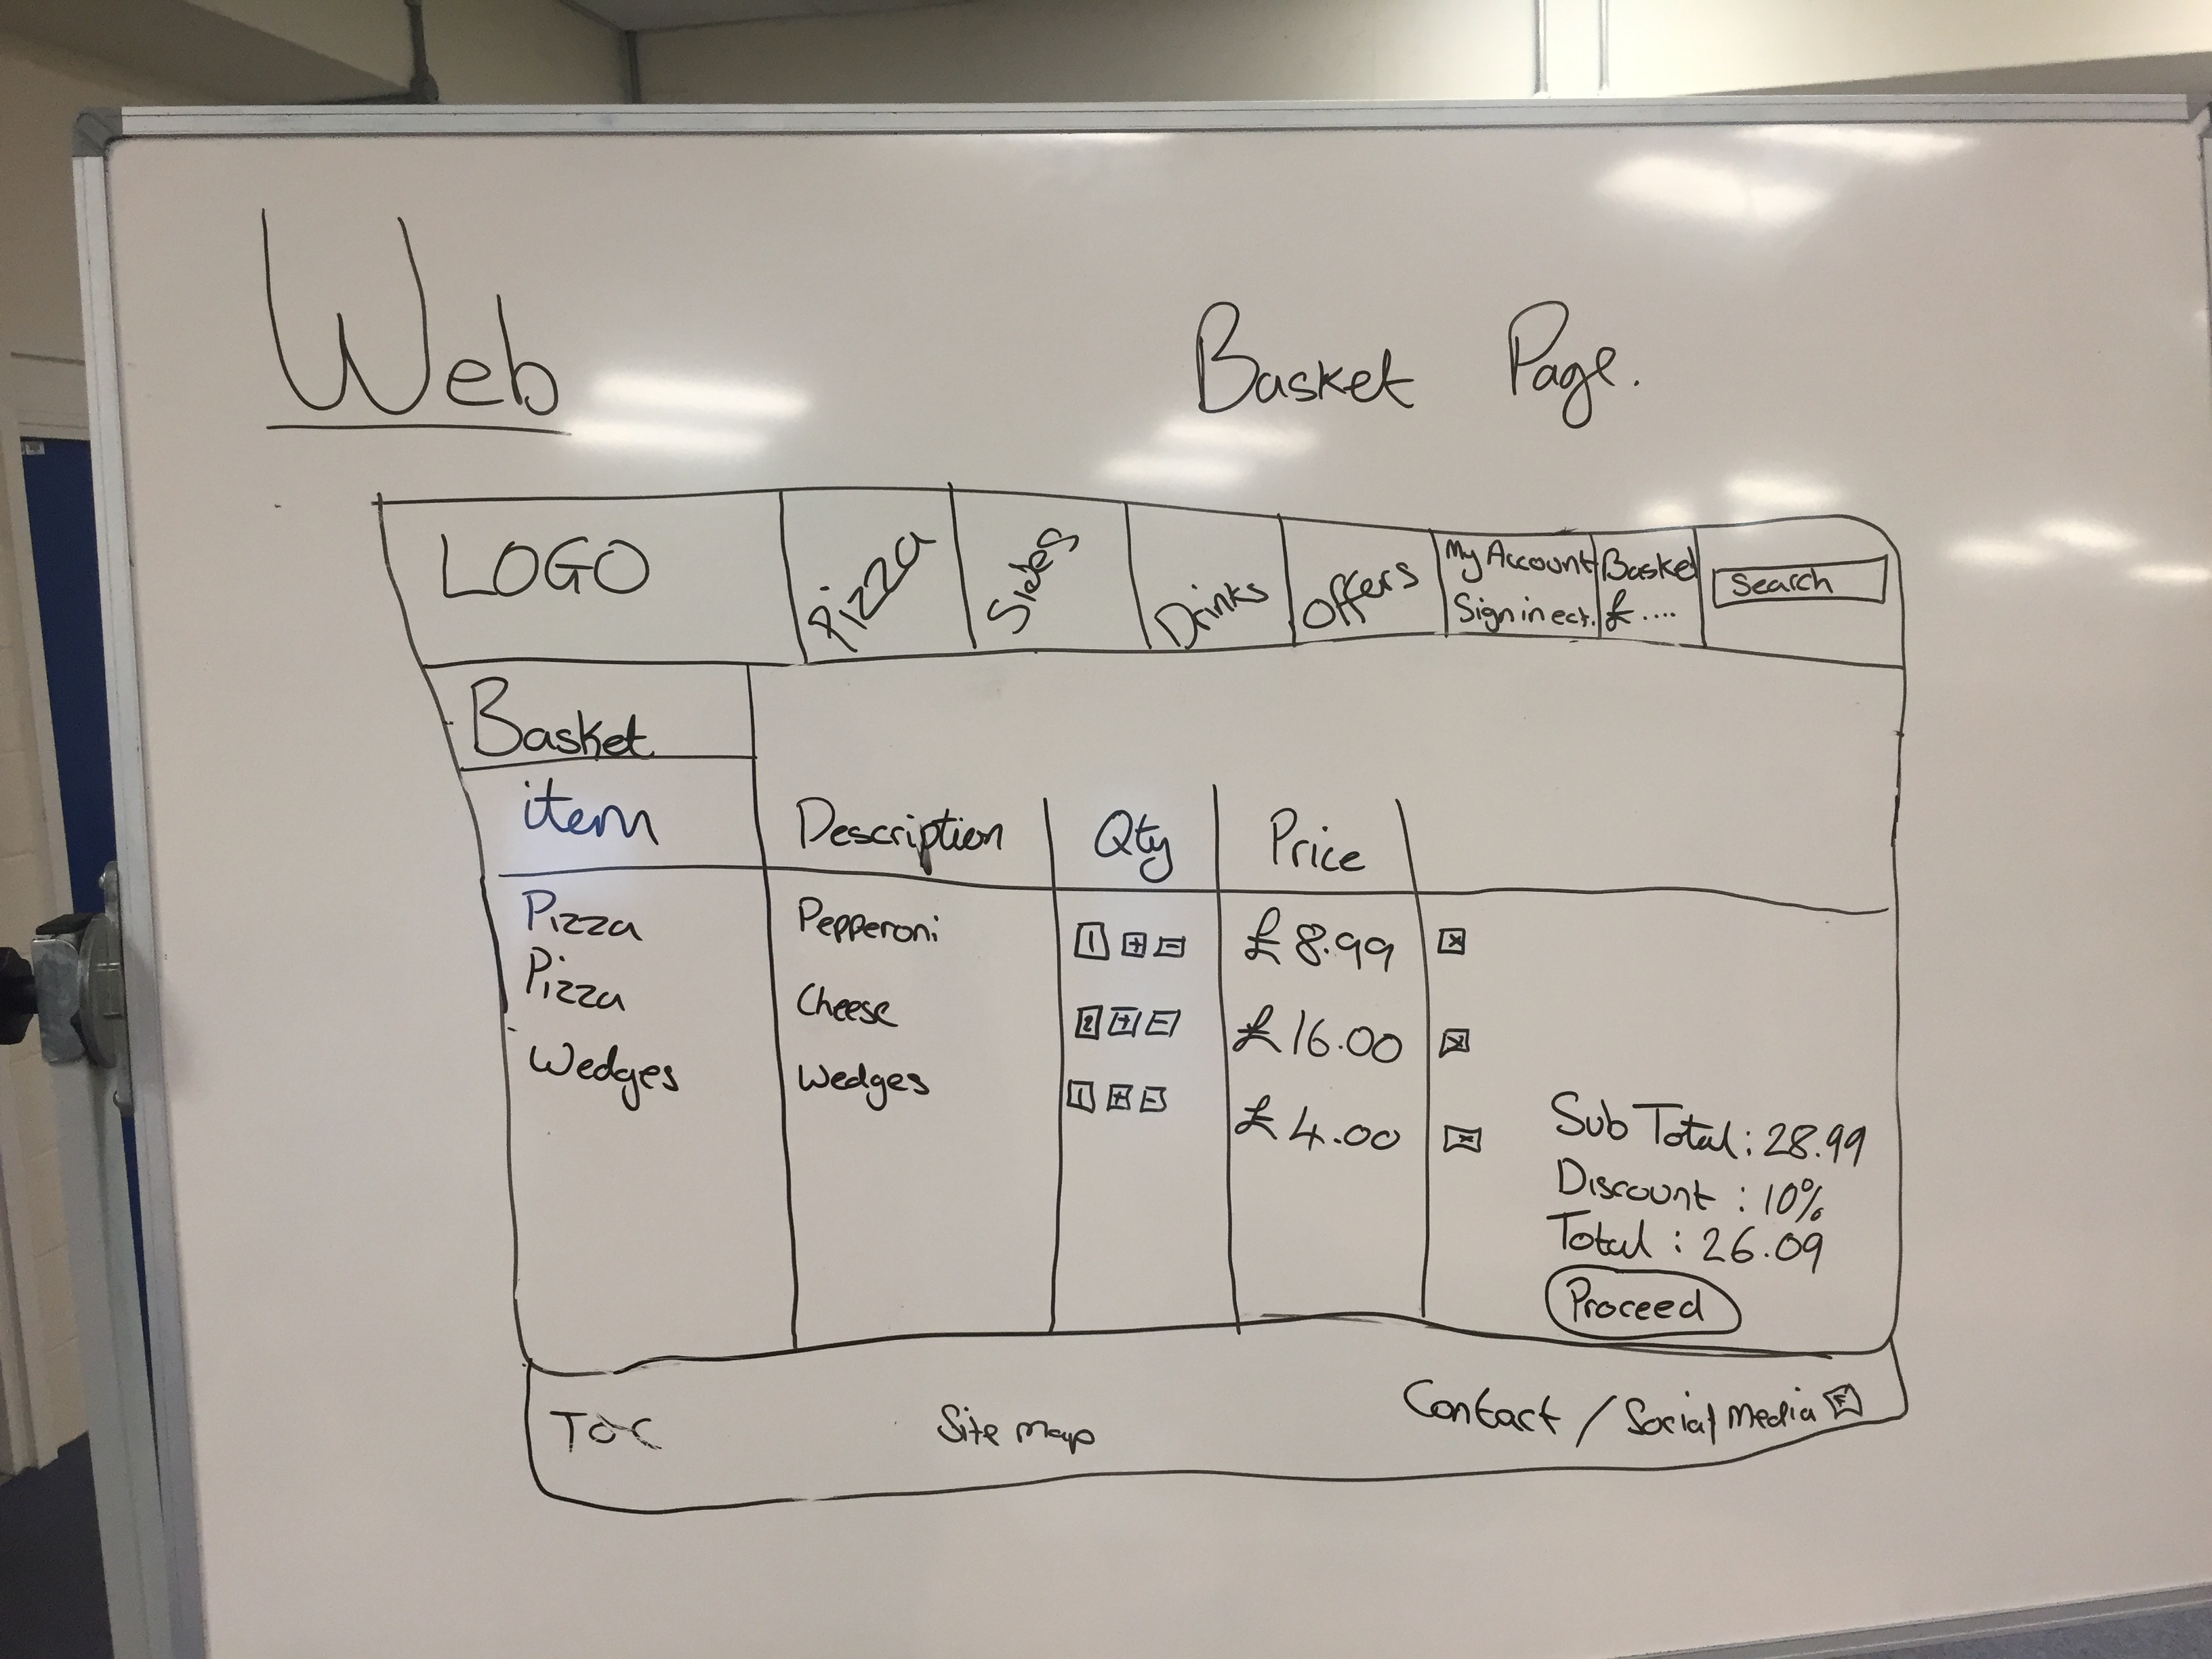 Web
Basket Page.
LOGO
Pizza
Sides
Drinks
Offers
My Account
Sign in ect.
Basket
£ ....
Search
Basket
item Description Qty Price
Pizza Pepperoni 1 + - £8.99 x
Pizza Cheese 2 + - £16.00 x
Wedges Wedges 1 + - £4.00 x
Sub Total: 28.99
Discount : 10%
Total : 26.09
Proceed
TOC Site map Contact / Social Media F